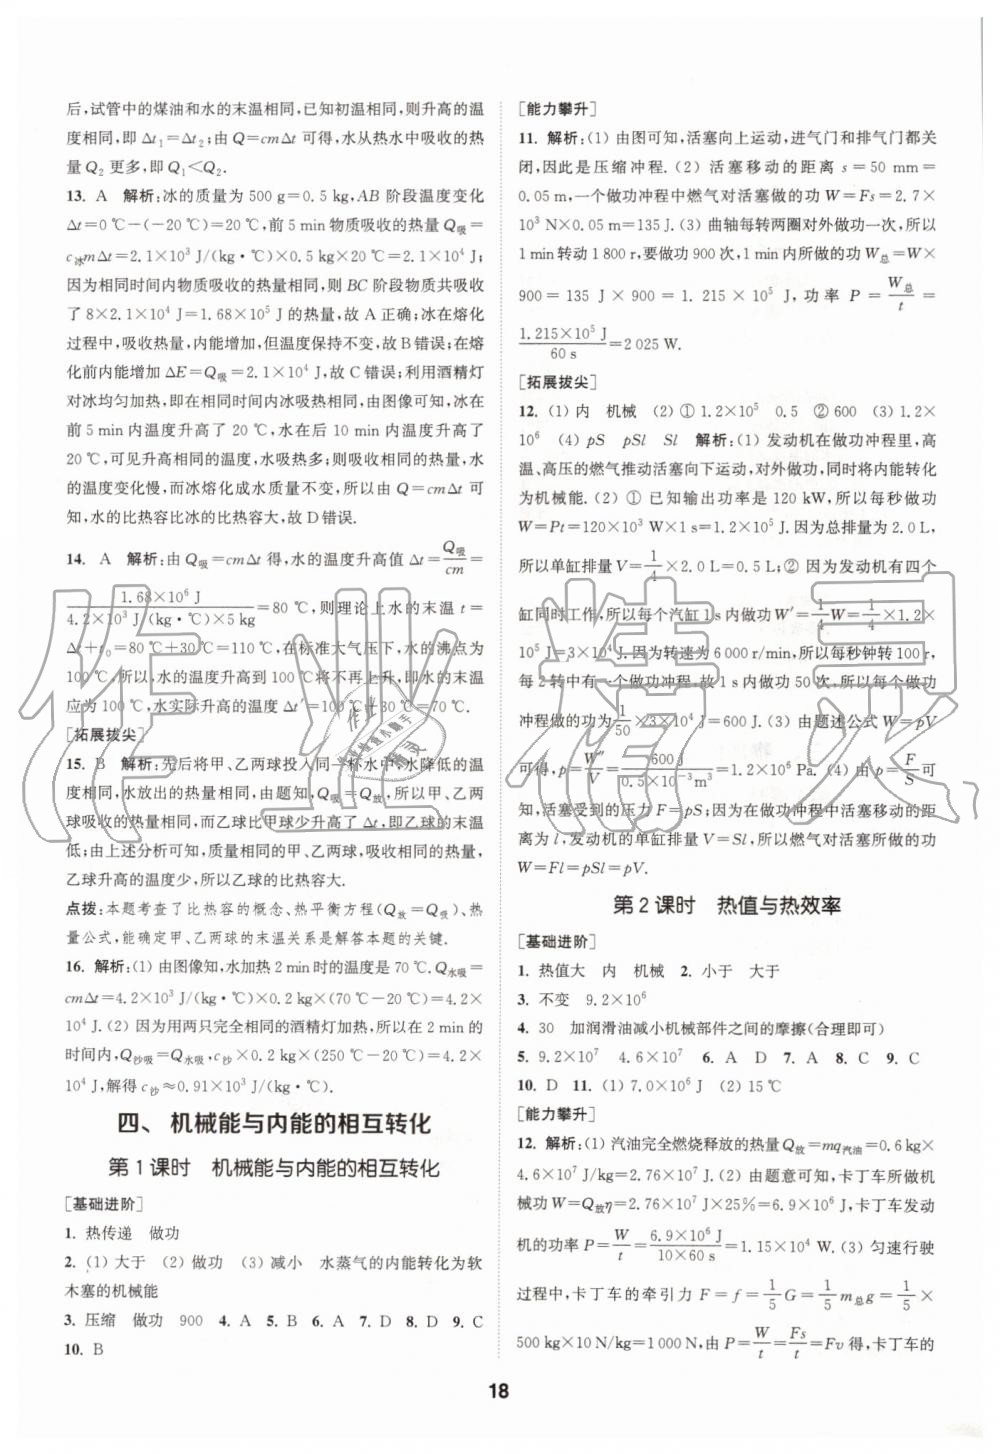 后,试管中的煤油和水的末温相同,已知初温相同,则升高的温
度相同,即 Δt₁=Δt₂;由 Q=cmΔt 可得,水从热水中吸收的热
量 Q₂ 更多,即 Q₁<Q₂.
13. A 解析:冰的质量为 500 g=0.5 kg,AB 阶段温度变化
Δt=0 ℃-(-20 ℃)=20 ℃,前 5 min 物质吸收的热量 Q吸=
c冰mΔt=2.1×10³ J/(kg·℃)×0.5 kg×20 ℃=2.1×10⁴ J;
因为相同时间内物质吸收的热量相同,则 BC 阶段物质共吸收
了 8×2.1×10⁴ J=1.68×10⁵ J 的热量,故 A 正确;冰在熔化
过程中,吸收热量,内能增加,但温度保持不变,故 B 错误;在熔
化前内能增加 ΔE=Q吸=2.1×10⁴ J,故 C 错误;利用酒精灯
对冰均匀加热,即在相同时间内冰吸热相同,由图像可知,冰在
前 5 min 内温度升高了 20 ℃,水在后 10 min 内温度升高了
20 ℃,可见升高相同的温度,水吸热多;则吸收相同的热量,水
的温度变化慢,而冰熔化成水质量不变,所以由 Q=cmΔt 可
知,水的比热容比冰的比热容大,故 D 错误.
14. A 解析:由 Q吸=cmΔt 得,水的温度升高值 Δt=Q吸/cm=
1.68×10⁶ J/4.2×10³ J/(kg·℃)×5 kg=80 ℃,则理论上水的末温 t=
Δt+t₀=80 ℃+30 ℃=110 ℃,在标准大气压下,水的沸点为
100 ℃,所以,水的温度升高到 100 ℃将不再上升,即水的末温
应为 100 ℃,水实际升高的温度 Δt′=100 ℃-30 ℃=70 ℃.
[拓展拔尖]
15. B 解析:先后将甲、乙两球投入同一杯水中,水降低的温
度相同,水放出的热量相同,由题知,Q吸=Q放,所以甲、乙两
球吸收的热量相同,而乙球比甲球少升高了 Δt,即乙球的末温
低;由上述分析可知,质量相同的甲、乙两球,吸收相同的热量,
乙球升高的温度少,所以乙球的比热容大.
点拨:本题考查了比热容的概念、热平衡方程(Q放=Q吸)、热
量公式,能确定甲、乙两球的末温关系是解答本题的关键.
16. 解析:(1) 由图像知,水加热 2 min 时的温度是 70 ℃.Q水吸=
cmΔt=4.2×10³ J/(kg·℃)×0.2 kg×(70 ℃-20 ℃)=4.2×
10⁴ J.(2) 因为用两只完全相同的酒精灯加热,所以在 2 min 的
时间内,Q沙吸=Q水吸,c沙×0.2 kg×(250 ℃-20 ℃)=4.2×
10⁴ J,解得 c沙≈0.91×10³ J/(kg·℃).
四、机械能与内能的相互转化
第 1 课时 机械能与内能的相互转化
[基础进阶]
1. 热传递 做功
2. (1) 大于 (2) 做功 (3) 减小 水蒸气的内能转化为软
木塞的机械能
3. 压缩 做功 900 4. A 5. B 6. A 7. D 8. D 9. C
10. B
[能力攀升]
11. 解析:(1) 由图可知,活塞向上运动,进气门和排气门都关
闭,因此是压缩冲程.(2) 活塞移动的距离 s=50 mm=
0.05 m,一个做功冲程中燃气对活塞做的功 W=Fs=2.7×
10³ N×0.05 m=135 J.(3) 曲轴每转两圈对外做功一次,所以
1 min 转动 1 800 r,要做功 900 次,1 min 内所做的功 W总=W×
900=135 J×900=1.215×10⁵ J,功率 P=W总/t=
1.215×10⁵ J/60 s=2 025 W.
[拓展拔尖]
12. (1) 内 机械 (2) ① 1.2×10⁵ 0.5 ② 600 (3) 1.2×
10⁶ (4) pS pSl Sl 解析:(1) 发动机在做功冲程里,高
温、高压的燃气推动活塞向下运动,对外做功,同时将内能转化
为机械能.(2) ① 已知输出功率是 120 kW,所以每秒做功
W=Pt=120×10³ W×1 s=1.2×10⁵ J.因为总排量为 2.0 L,
所以单缸排量 V=1/4×2.0 L=0.5 L;② 因为发动机有四个
缸同时工作,所以每个汽缸 1 s 内做功 W′=1/4W=1/4×1.2×
10⁵ J=3×10⁴ J.因为转速为 6 000 r/min,所以每秒钟转 100 r,
每 2 转中有一个做功冲程,故 1 s 内做功 50 次,所以每个做功
冲程做的功为1/50×3×10⁴ J=600 J.(3) 由题述公式 W=pV
可得,p=W″/V=600 J/0.5×10⁻³m³=1.2×10⁶ Pa.(4) 由 p=F/S可
知,活塞受到的压力 F=pS;因为在做功冲程中活塞移动的距
离为 l,发动机的单缸排量 V=Sl,所以燃气对活塞所做的功
W=Fl=pSl=pV.
第 2 课时 热值与热效率
[基础进阶]
1. 热值大 内 机械 2. 小于 大于
3. 不变 9.2×10⁶
4. 30 加润滑油减小机械部件之间的摩擦(合理即可)
5. 9.2×10⁷ 4.6×10⁷ 6. A D 7. A 8. C 9. C
10. D 11. (1) 7.0×10⁶ J (2) 15 ℃
[能力攀升]
12. 解析:(1) 汽油完全燃烧释放的热量 Q放=mq汽油=0.6 kg×
4.6×10⁷ J/kg=2.76×10⁷ J.(2) 由题意可知,卡丁车所做机
械功 W=Q放η=2.76×10⁷ J×25%=6.9×10⁶ J,卡丁车发动
机的功率 P=W/t=6.9×10⁶ J/10×60 s=1.15×10⁴ W.(3) 匀速行驶
过程中,卡丁车的牵引力 F=f=1/5G=1/5m总g=1/5×
500 kg×10 N/kg=1 000 N,由 P=W/t=Fs/t=Fv 得,卡丁车的
18
作业精灵